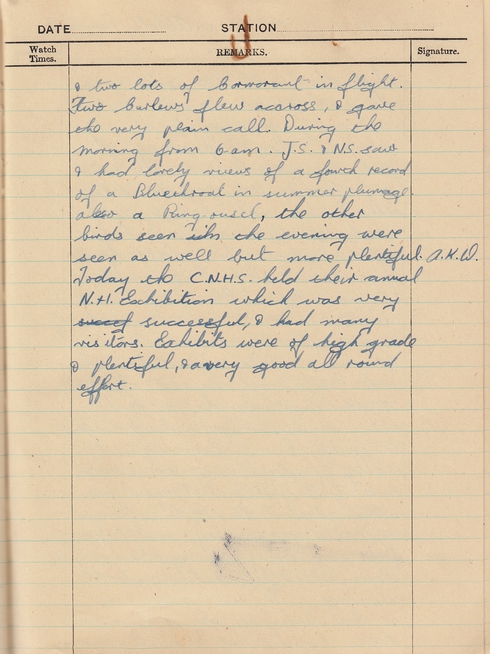 DATE STATION
Watch Times. REMARKS. Signature.
& two lots of Cormorant in flight.
Two Curlews flew accross, & gave
the very plain call. During the
morning from 6am. J.S. & N.S. saw
& had lovely views of a fourth record
of a Bluethroat in summer plumage.
also a Ring ousel, the other
birds seen in the evening were
seen as well but more plentiful. A.K.W.
Today the C.N.H.S. held their annual
N.H. Exhibition which was very
successful, & had many
visitors. Exhibits were of high grade
& plentiful, & a very good all round
effort.